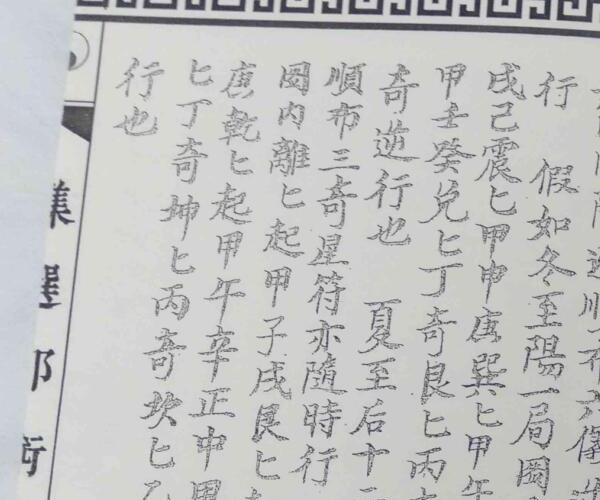 逆順布六儀
行 假如冬至陽一局圈
戌己震匕甲申庚巽匕甲午
甲壬癸兌匕丁奇艮匕丙
奇逆行也 夏至后十
順布三奇星符亦隨時行
圈内離匕起甲子戌艮匕
庚乾匕起甲午辛正中甲
匕丁奇坤匕丙奇坎匕乙
行也